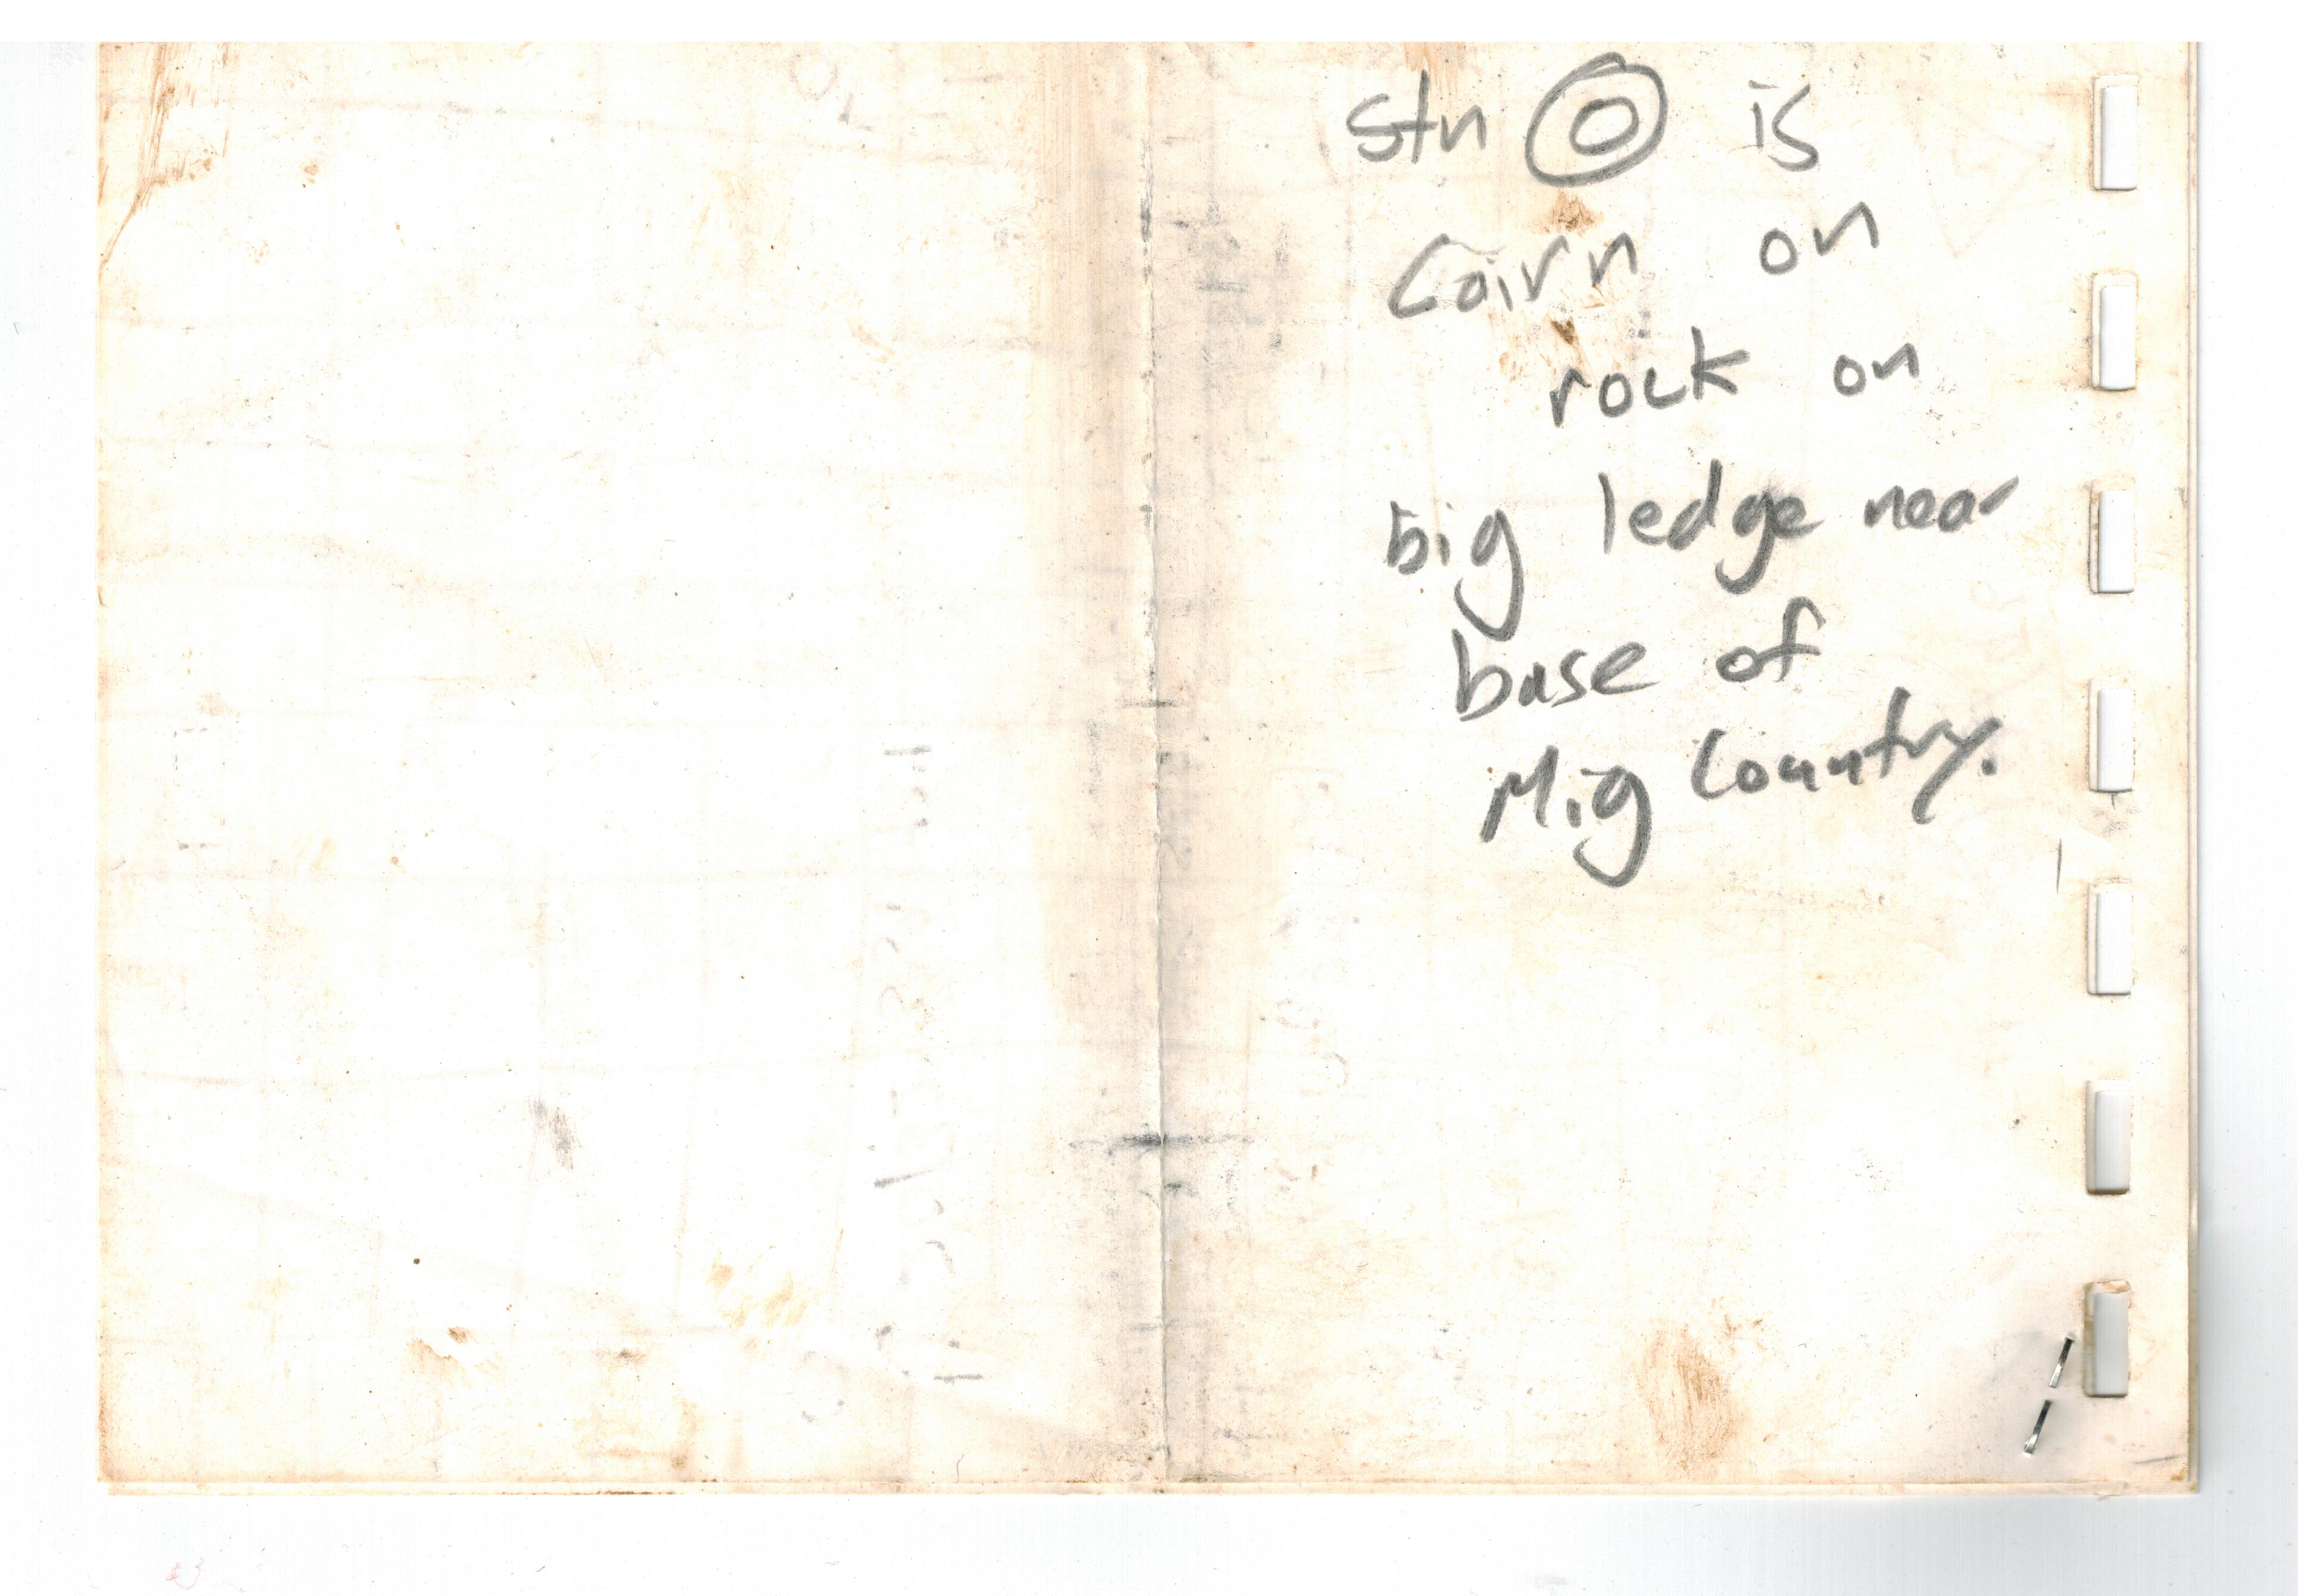 stn 0 is
Cairn on
rock on
big ledge near
base of
Mig Country.